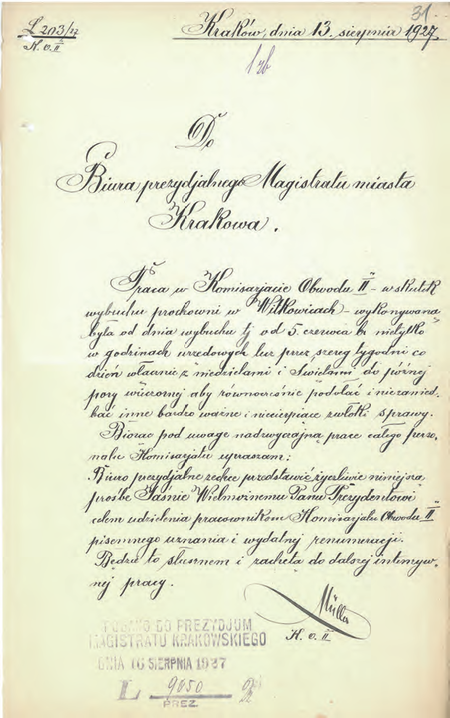 31
L 203/27
K. O. II
Kraków, dnia 13. sierpnia 1927
Do
Biura prezydjalnego Magistratu miasta
Krakowa.
Praca w Komisarjacie Obwodu II - w skutek
wybuchu prochowni w Witkowicach - wykonywana
była od dnia wybuchu tj. od 5. czerwca br. nietylko
w godzinach urzędowych lecz przez szereg tygodni co
dzień włącznie z niedzielami i świętami do późnej
pory wieczornej aby równocześnie podołać i niezanied-
bać inne bardzo ważne i niecierpiące zwłoki sprawy.
Biorąc pod uwagę nadzwyczajną pracę całego perso-
nalu Komisarjatu upraszam:
Biuro prezydjalne zechce przedstawić życzliwie niniejszą
prośbę Jaśnie Wielmożnemu Panu Prezydentowi
celem udzielenia pracownikom Komisarjatu Obwodu II
pisemnego uznania i wydatnej renumeracji.
Będzie to słusznem i zachętą do dalszej intensyw-
nej pracy.
K. O. II
PODANO DO PREZYDJUM
MAGISTRATU KRAKOWSKIEGO
DNIA 16 SIERPNIA 1927
L 9050
PREZ.